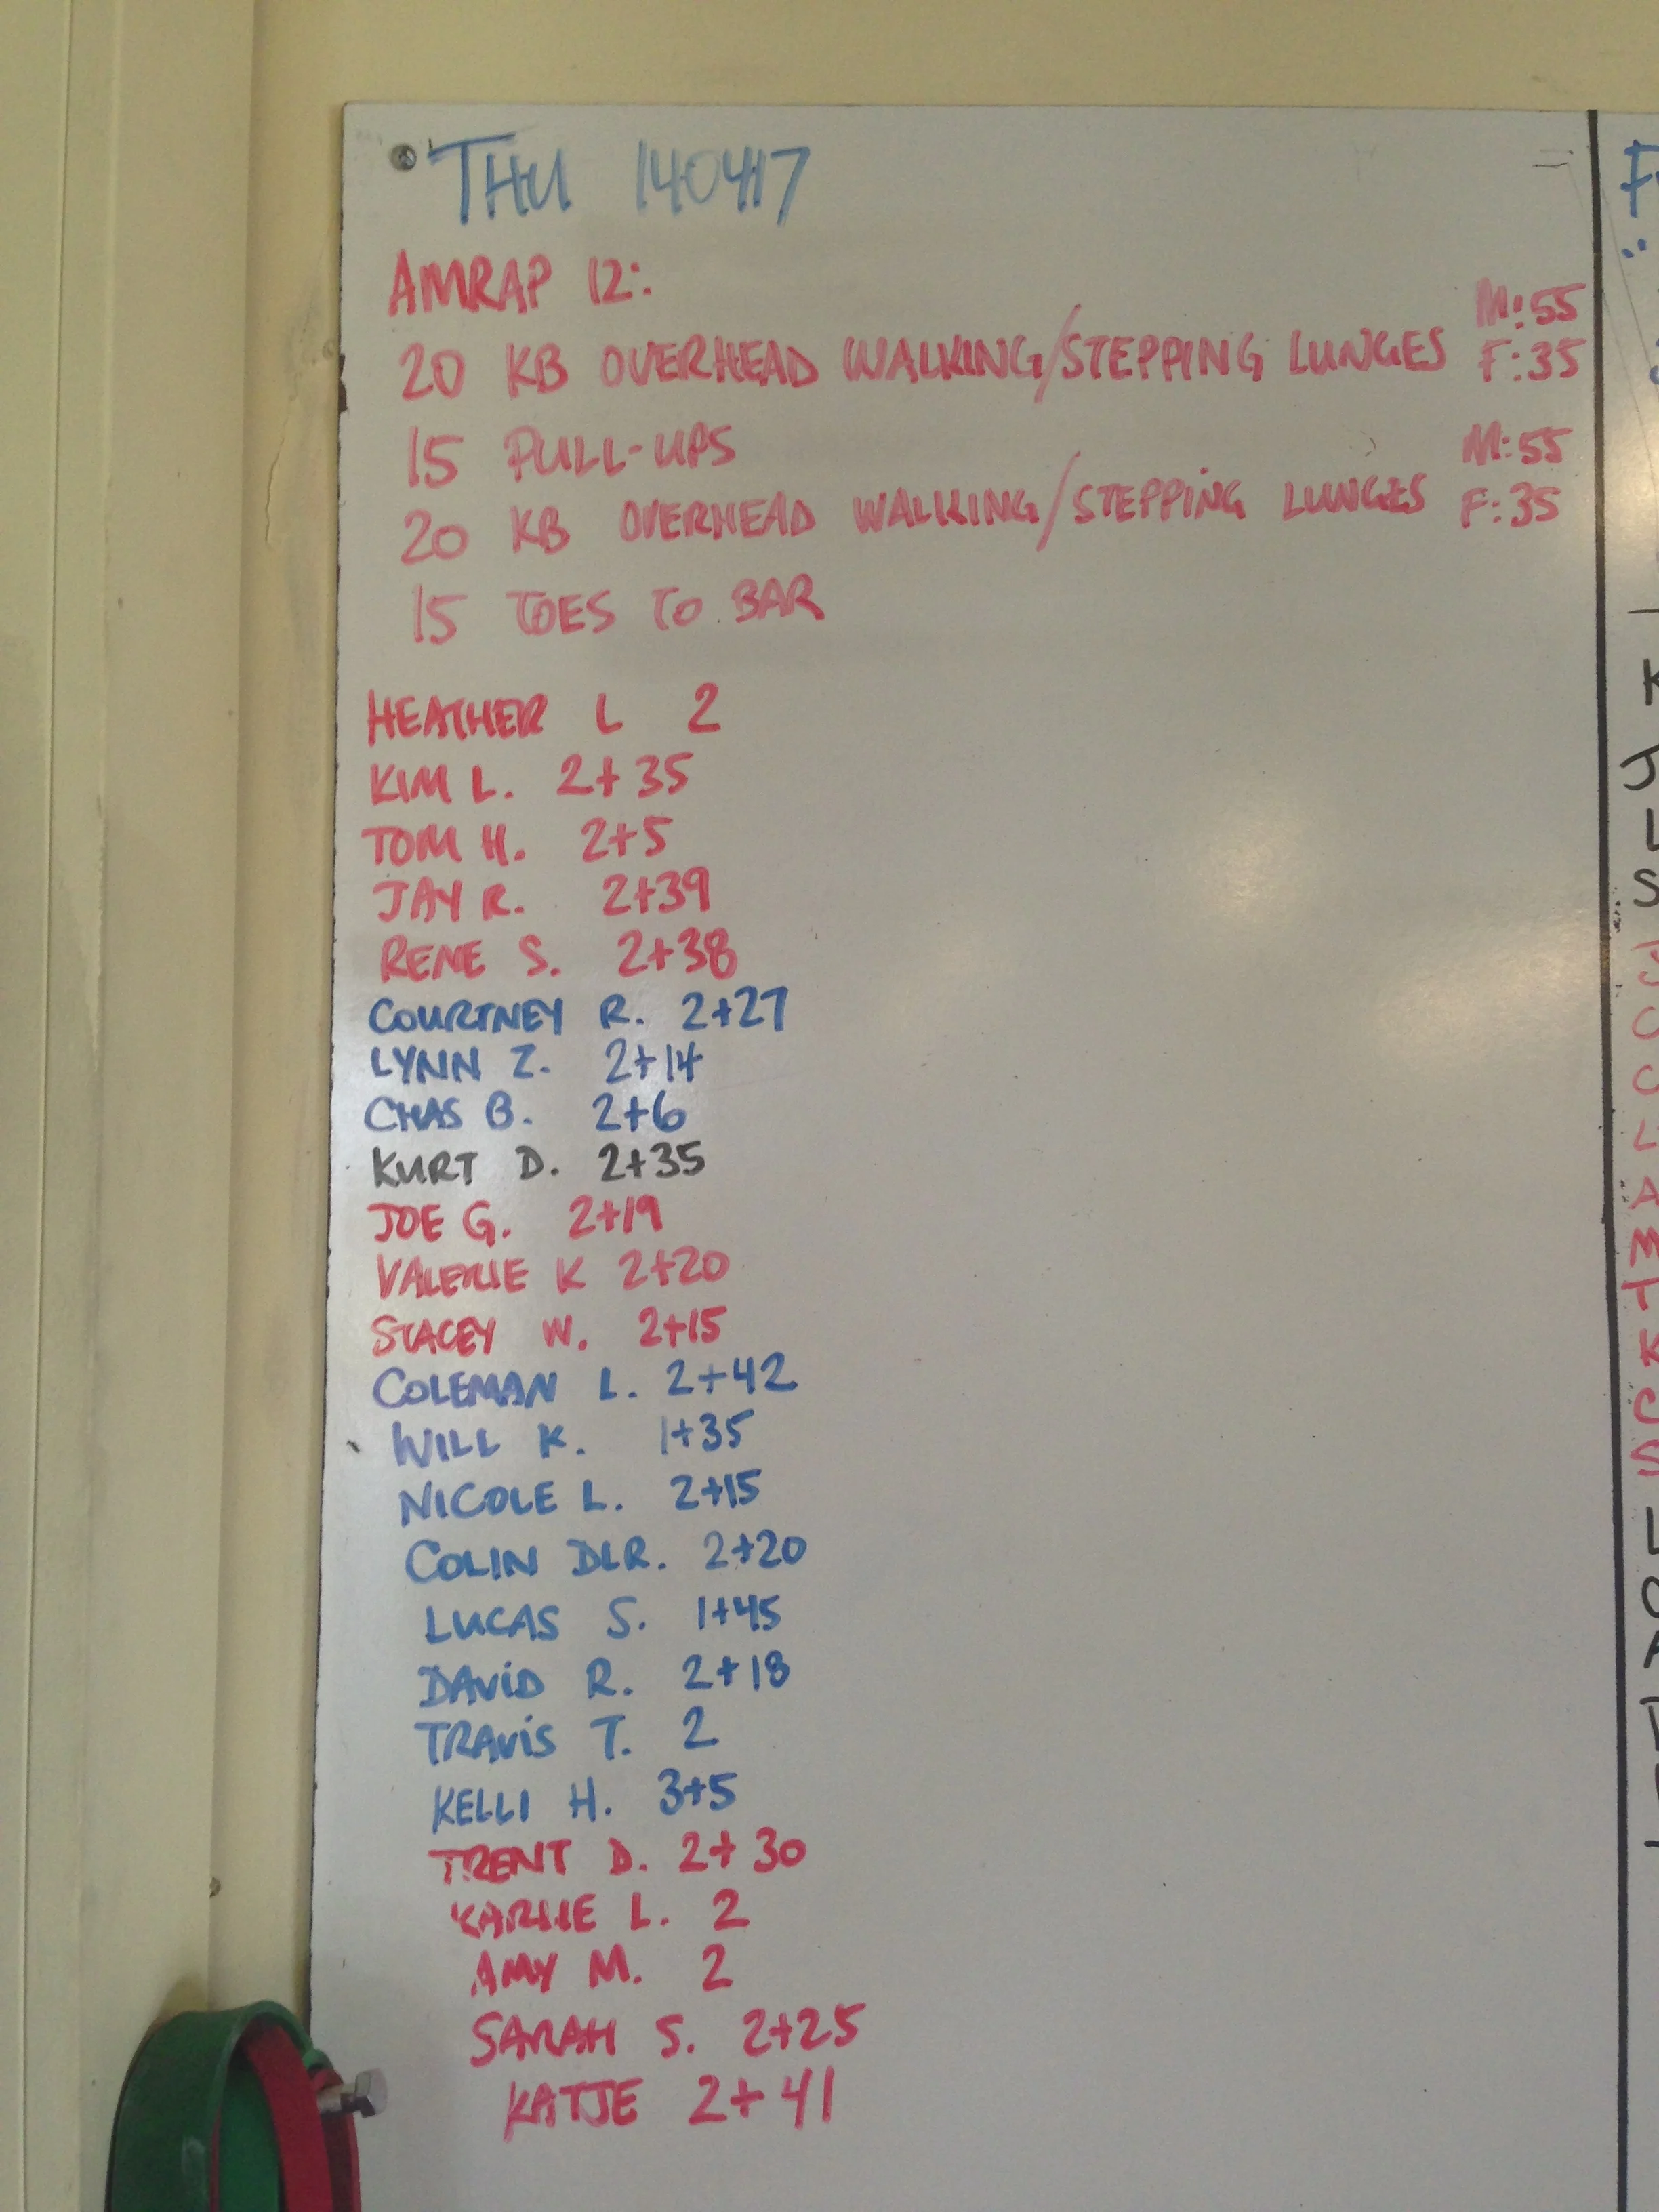 THU 140417
AMRAP 12:
20 KB OVERHEAD WALKING/STEPPING LUNGES M:55 F:35
15 PULL-UPS
20 KB OVERHEAD WALKING/STEPPING LUNGES M:55 F:35
15 TOES TO BAR
HEATHER L 2
KIM L. 2+35
TOM H. 2+5
JAY R. 2+39
RENE S. 2+38
COURTNEY R. 2+27
LYNN Z. 2+14
CHAS B. 2+6
KURT D. 2+35
JOE G. 2+19
VALERIE K 2+20
STACEY W. 2+15
COLEMAN L. 2+42
WILL K. 1+35
NICOLE L. 2+15
COLIN DLR. 2+20
LUCAS S. 1+45
DAVID R. 2+18
TRAVIS T. 2
KELLI H. 3+5
TRENT D. 2+30
KARLIE L. 2
AMY M. 2
SARAH S. 2+25
KATJE 2+41